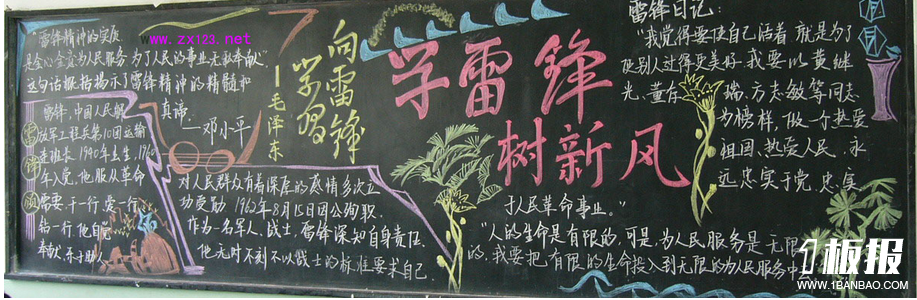 www.zx123.net
"雷锋精神的实质
是全心全意为人民服务,为了人民的事业无私奉献"
这句话概括揭示了雷锋精神的精髓和
真谛。
—邓小平
雷锋,中国人民解
放军工程兵第10团运输
连班长,1940年去生,1960
年入党,他服从革命
需要,干一行,爱一行,
钻一行,他自觉
奉献,乐于助人
对人民群众有着深厚的感情,多次立
功受励。1962年8月15日因公殉职
作为一名军人、战士,雷锋深知自身责任,
他无时不刻不以战士的标准要求自己
向雷锋
学习
—毛泽东
学雷锋
树新风
雷锋日记:
"我觉得要使自己活着,就是为了
使别人过得更美好,我要以黄继
光、董存瑞、方志敏等同志
为榜样,做一个热爱
祖国、热爱人民,永
远忠实于党,忠实
于人民革命事业。"
"人的生命是有限的,可是,为人民服务是无限
的,我要把有限的生命投入到无限的为人民服务中去
1板报
WWW.1BANBAO.COM